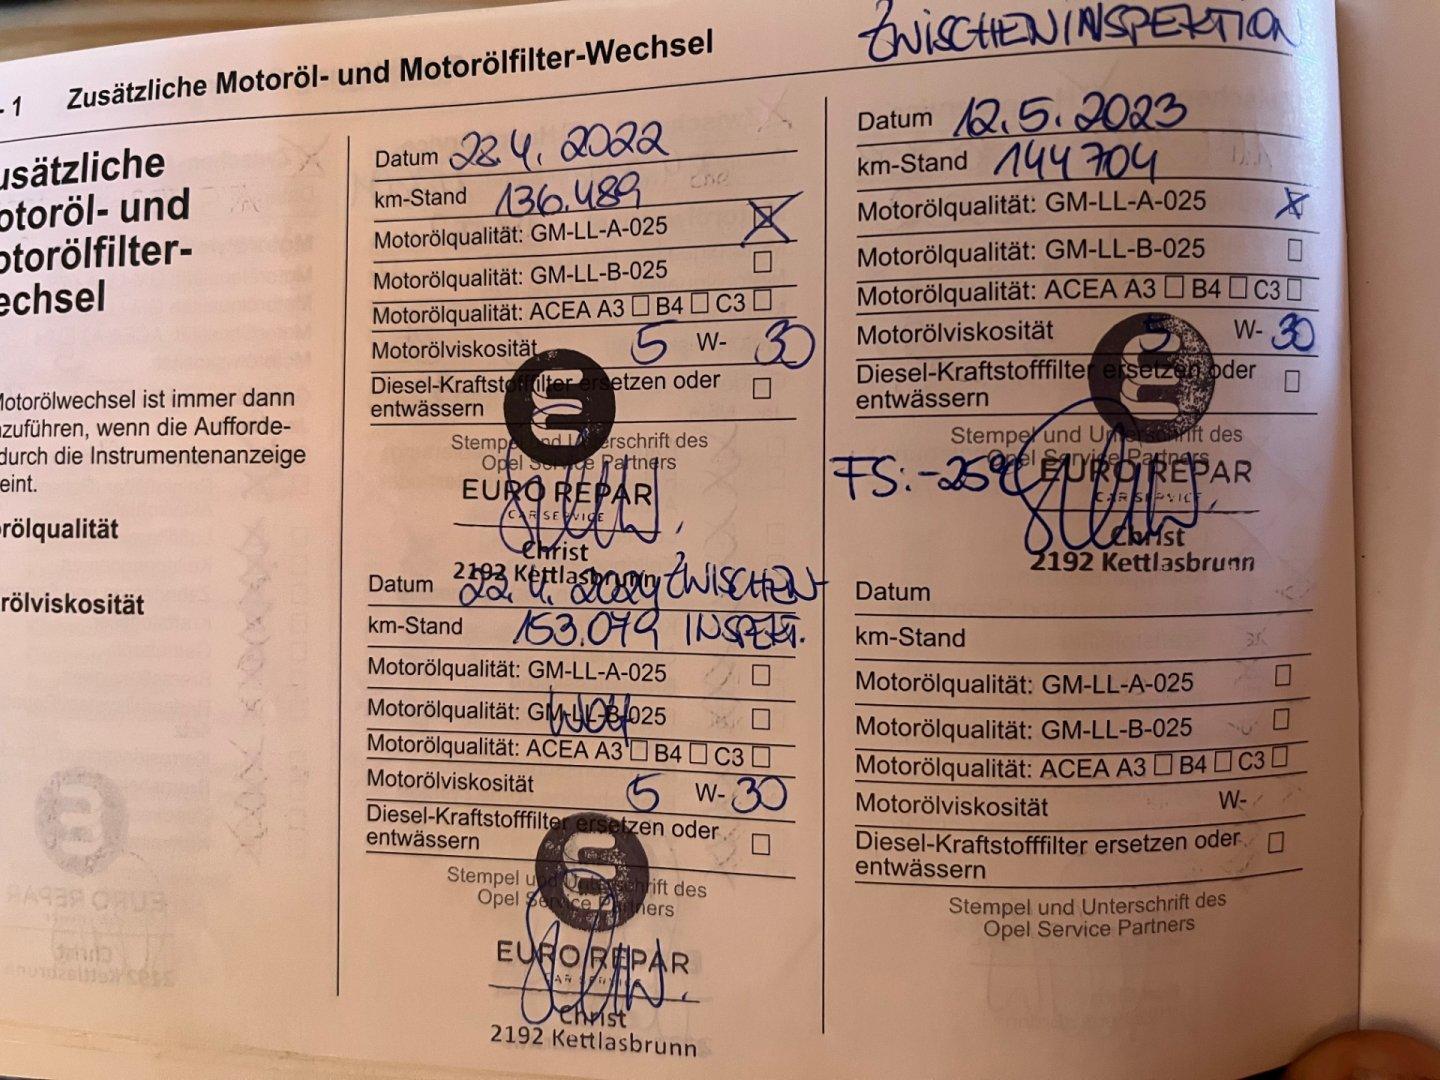 - 1 Zusätzliche Motoröl- und Motorölfilter-Wechsel
ZWISCHENINSPEKTION
usätzliche
otoröl- und
otorölfilter-
echsel
Motorölwechsel ist immer dann
zuführen, wenn die Aufforde-
durch die Instrumentenanzeige
eint.
rölqualität
rölviskosität
Datum 28.4.2022
km-Stand 136.489
Motorölqualität: GM-LL-A-025
Motorölqualität: GM-LL-B-025
Motorölqualität: ACEA A3 B4 C3
Motorölviskosität 5 W- 30
Diesel-Kraftstofffilter ersetzen oder
entwässern
Stempel und Unterschrift des
Opel Service Partners
EURO REPAR
CAR SERVICE
Christ
2192 Kettlasbrunn
Datum 22.4.2024 ZWISCHEN-
km-Stand 153.079 INSPEKT.
Motorölqualität: GM-LL-A-025
Motorölqualität: GM-LL-B-025
Motorölqualität: ACEA A3 B4 C3
Motorölviskosität 5 W- 30
Diesel-Kraftstofffilter ersetzen oder
entwässern
Stempel und Unterschrift des
Opel Service Partners
EURO REPAR
CAR SERVICE
Christ
2192 Kettlasbrunn
Datum 12.5.2023
km-Stand 144704
Motorölqualität: GM-LL-A-025
Motorölqualität: GM-LL-B-025
Motorölqualität: ACEA A3 B4 C3
Motorölviskosität 5 W- 30
Diesel-Kraftstofffilter ersetzen oder
entwässern
Stempel und Unterschrift des
Opel Service Partners
FS: -25°C
EURO REPAR
CAR SERVICE
Christ
2192 Kettlasbrunn
Datum
km-Stand
Motorölqualität: GM-LL-A-025
Motorölqualität: GM-LL-B-025
Motorölqualität: ACEA A3 B4 C3
Motorölviskosität W-
Diesel-Kraftstofffilter ersetzen oder
entwässern
Stempel und Unterschrift des
Opel Service Partners